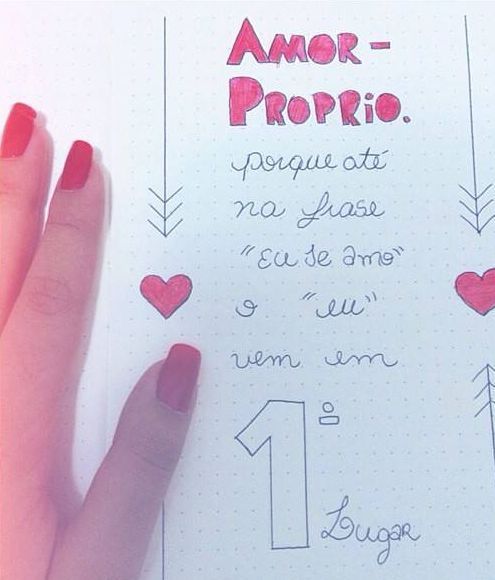 AMOR-
PROPRIO.
porque até
na frase
"Eu te amo"
o "eu"
vem em
1º
Lugar